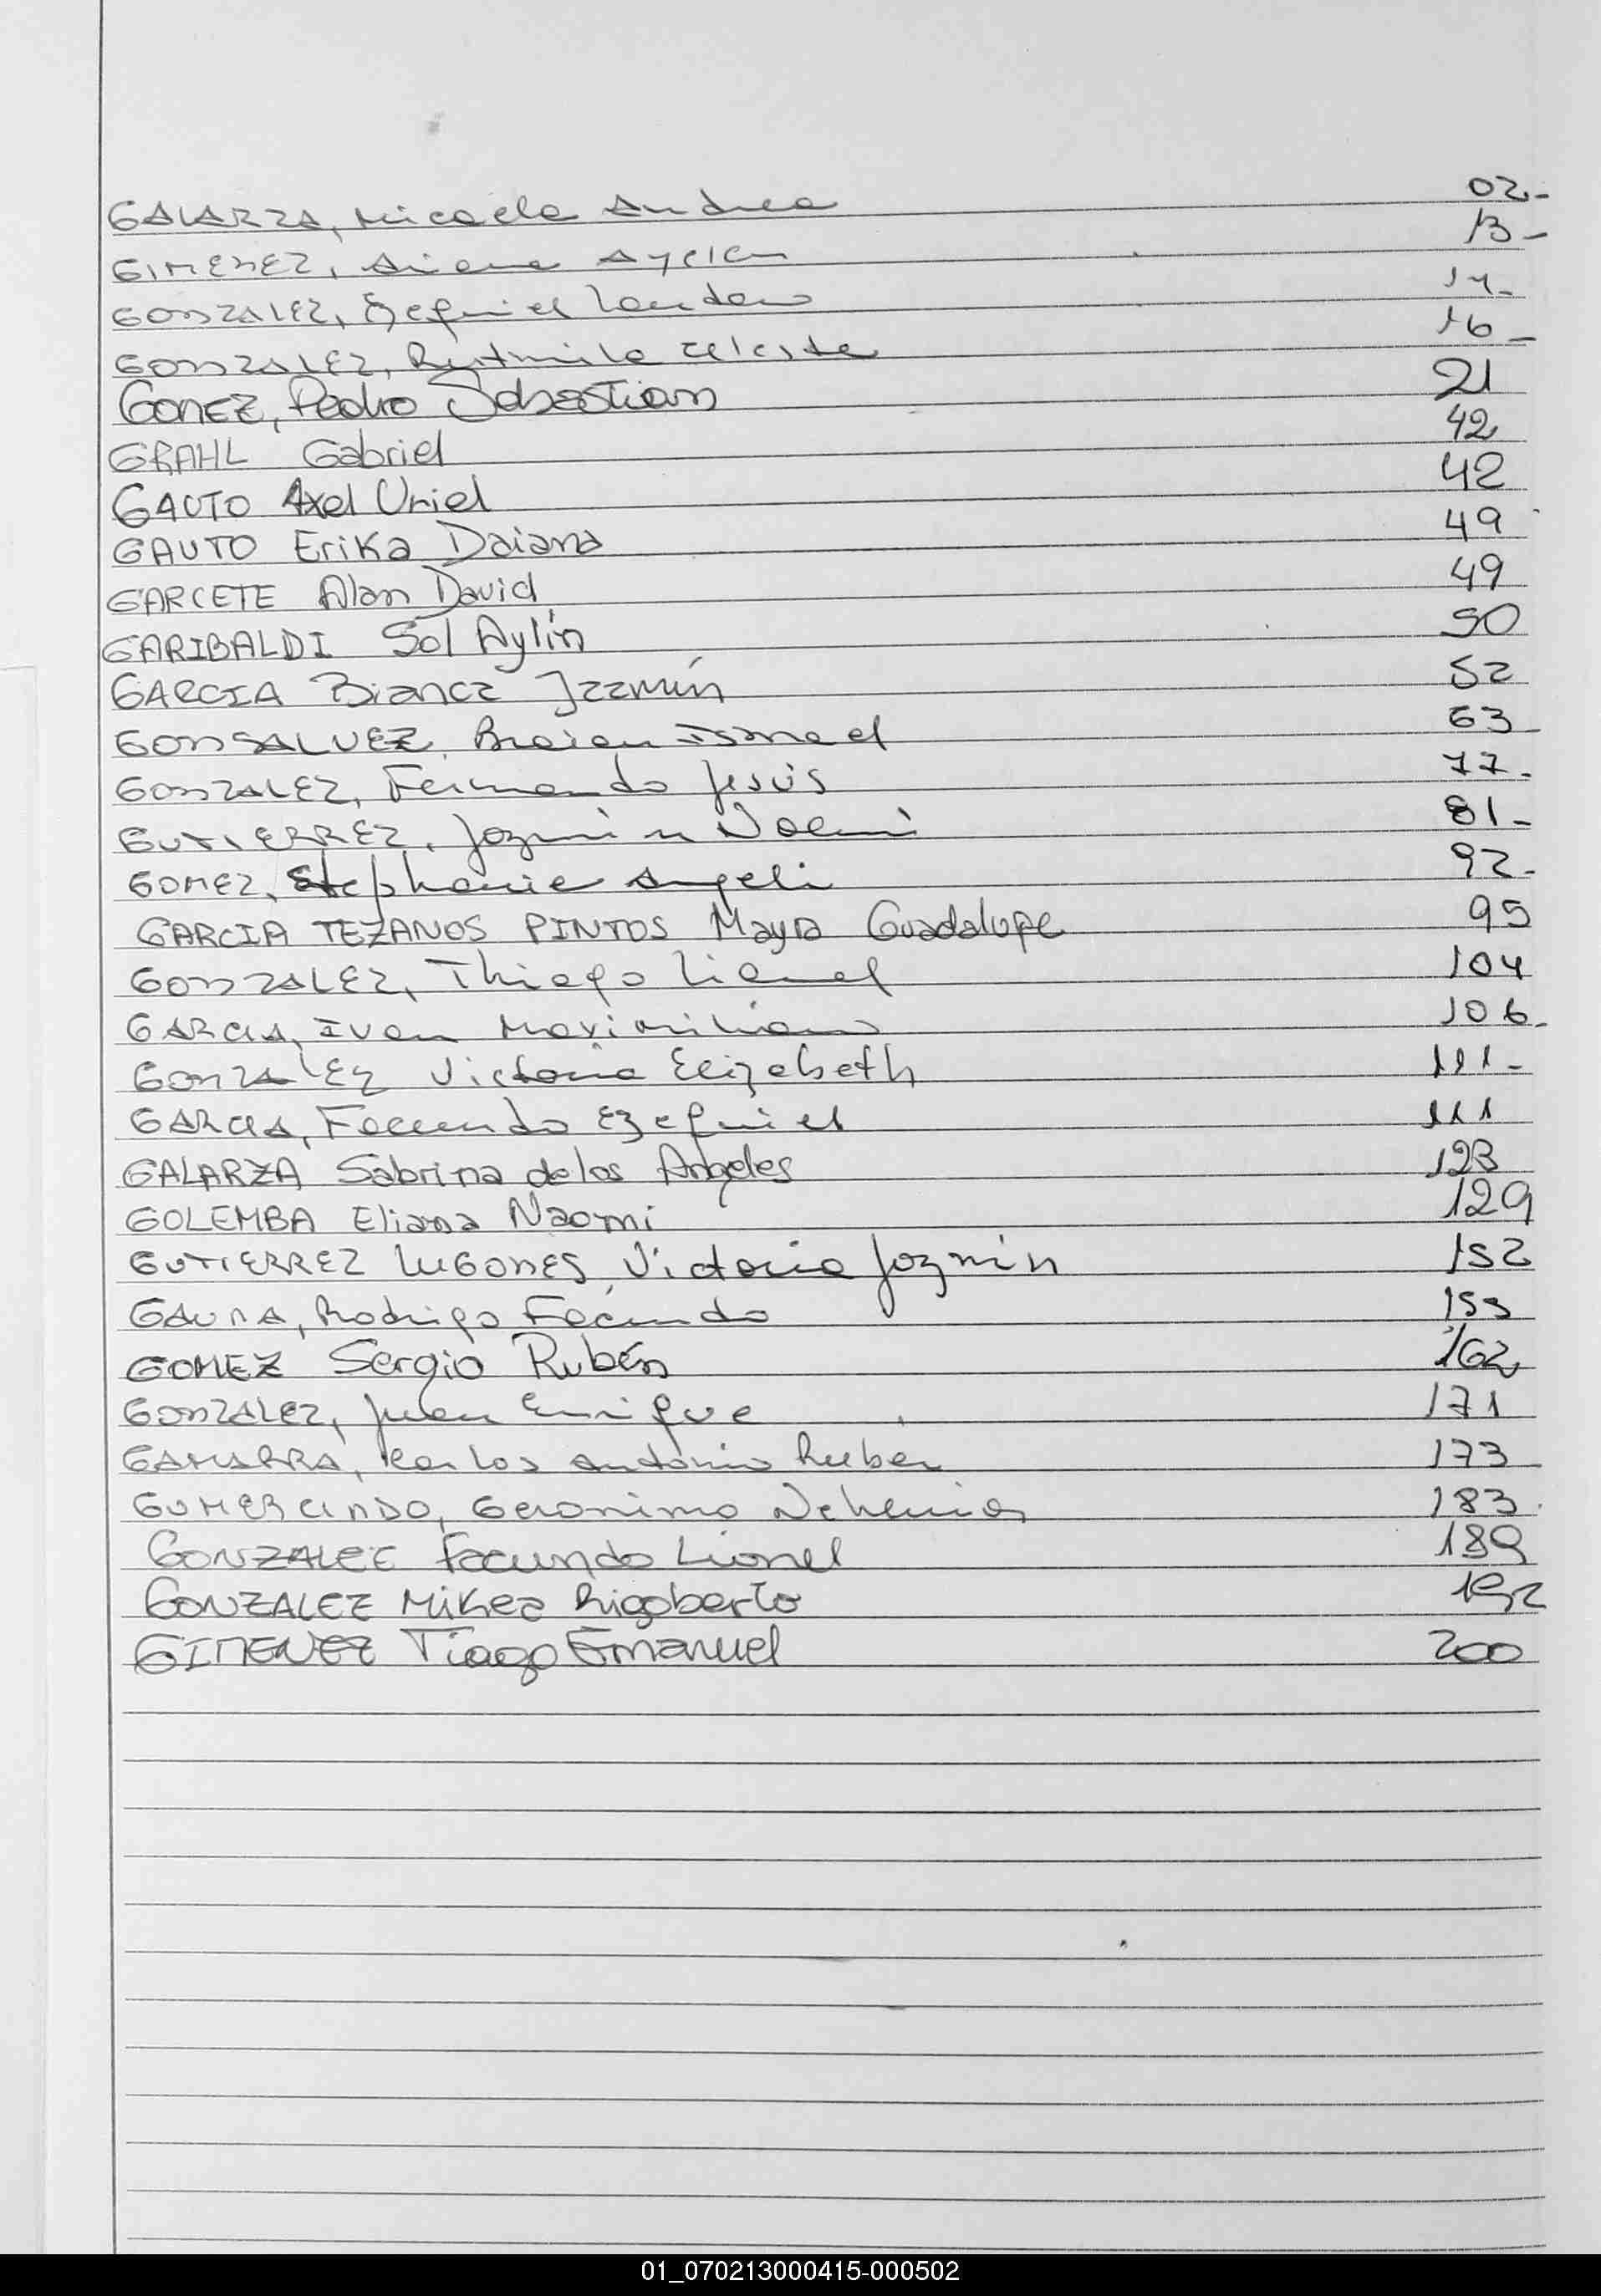 GALARZA, Micaela Andrea 02-
GIMENEZ, Ayelen 13-
GONZALEZ, Ezequiel 14-
GONZALEZ, Celeste 16-
GOMEZ, Pedro Sebastian 21
GRAHL Gabriel 42
GAUTO Axel Uriel 42
GAUTO Erika Daiana 49
GARCETE Alan David 49
GARIBALDI Sol Aylin 50
GARCIA Bianca Jazmín 52
GONSALVEZ, Braian Ismael 63
GONZALEZ, Fernando Jesús 77-
GUTIERREZ, Jazmin Noemi 81-
GOMEZ, Stephanie Angeli 92-
GARCIA TEZANOS PINTOS Mayra Guadalupe 95
GONZALEZ, Thiago Lionel 104
GARCIA, Ivan Maximiliano 106-
GONZALEZ Victoria Elizabeth 111-
GARCIA, Facundo Ezequiel 111
GALARZA Sabrina de los Angeles 123
GOLEMBA Eliana Naomi 129
GUTIERREZ LUGONES, Victoria Jazmin 152
GAUNA, Rodrigo Facundo 155
GOMEZ Sergio Rubén 162
GONZALEZ, Juan Enrique 171
GAMARRA, Carlos Antonio Ruben 173
GUMERCINDO, Geronimo Nehemias 183
GONZALEZ Facundo Lionel 189
GONZALEZ Mikea Rigoberto 192
GIMENEZ Tiago Emanuel 200
01_070213000415-000502